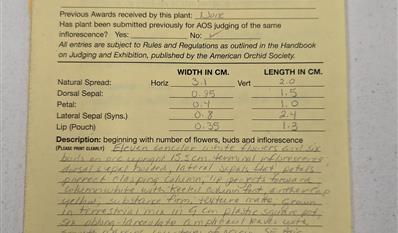 Previous Awards received by this plant: None
Has plant been submitted previously for AOS judging of the same
inflorescence? Yes: No: ✓
All entries are subject to Rules and Regulations as outlined in the Handbook
on Judging and Exhibition, published by the American Orchid Society.
WIDTH IN CM. LENGTH IN CM.
Natural Spread: Horiz 3.1 Vert 2.0
Dorsal Sepal: 0.95 1.5
Petal: 0.4 1.0
Lateral Sepal (Syns.) 0.8 2.4
Lip (Pouch) 0.35 1.3
Description: beginning with number of flowers, buds and inflorescence
(PLEASE PRINT CLEARLY) Eleven concolor white flowers and six
buds on one upright 15.5 cm terminal inflorescence,
dorsal sepal hooded, lateral sepals flat, petals
porrect clasping column, lip porrects forward
column white with keeled column foot, anther cap
yellow, substance firm, texture matte, grown
in terrestrial mix in 9 cm plastic square pot
six oblong-lanceolate